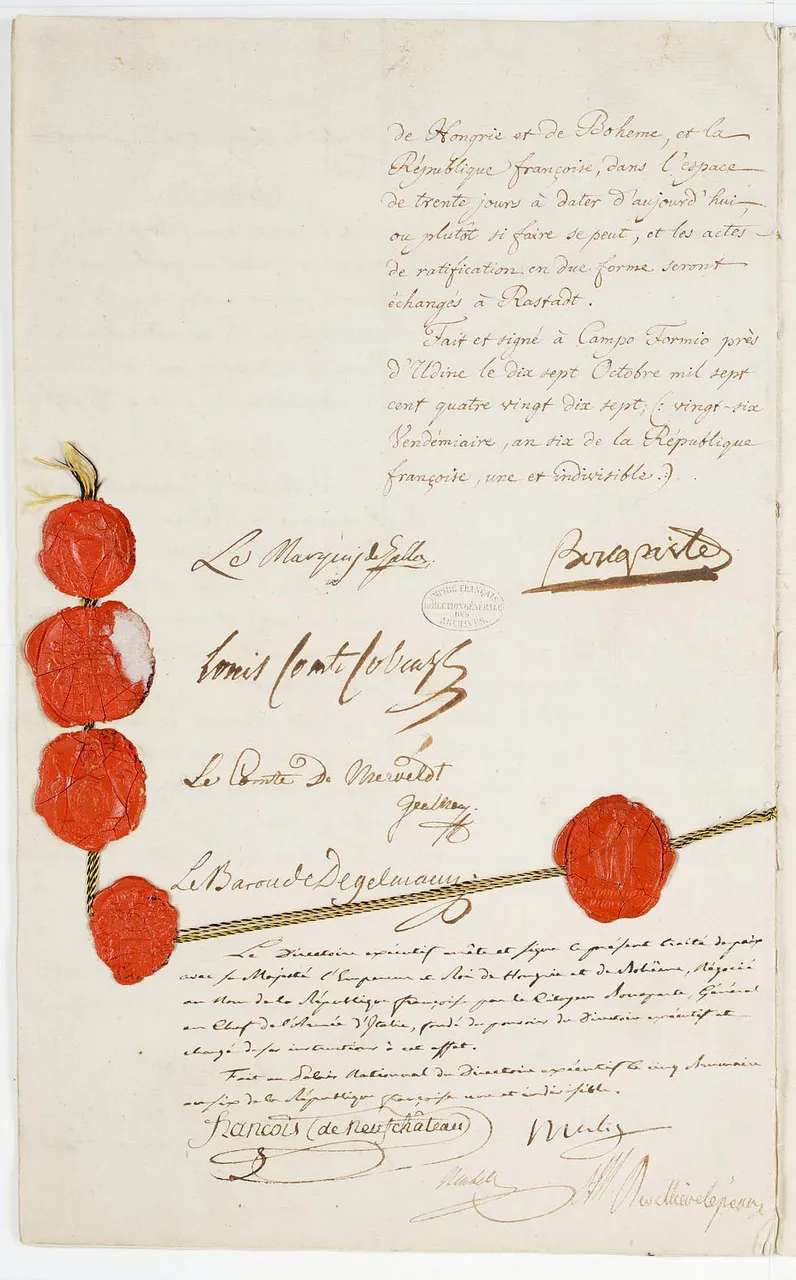 de Hongrie et de Boheme, et la
République françoise, dans l'espace
de trente jours à dater d'aujourd'hui,
ou plutôt si faire se peut, et les actes
de ratification en due forme seront
échangés à Rastadt.
Fait et signé à Campo Formio près
d'Udine le dix sept Octobre mil sept
cent quatre vingt dix sept; (: vingt-six
Vendémiaire, an six de la République
françoise, une et indivisible.:)
Le Marquis de Gallo
Bonaparte
EMPIRE FRANÇAIS
DIRECTION GÉNÉRALE
DES
ARCHIVES.
Louis Comte Cobenzl
Le Comte De Merveldt
Le Baron de Degelmann
Le Directoire exécutif arrête et signe le présent traité de paix
avec sa Majesté l'Empereur et Roi de Hongrie et de Bohême, Négocié
au Nom de la République françoise par le Citoyen Bonaparte, Général
en Chef de l'Armée d'Italie, fondé de pouvoirs du Directoire exécutif et
chargé de ses instructions à cet effet.
Fait au Palais National du Directoire exécutif le cinq Brumaire
an six de la République françoise une et indivisible.
françois (de neufchâteau)
Merlin
Reubell
Revellière lépeaux